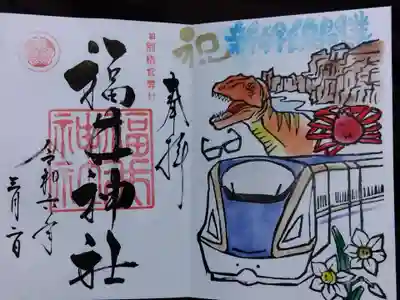 祝 新幹線開業
奉拝
旧別格官幣社
福井神社
福井神社
令和六年